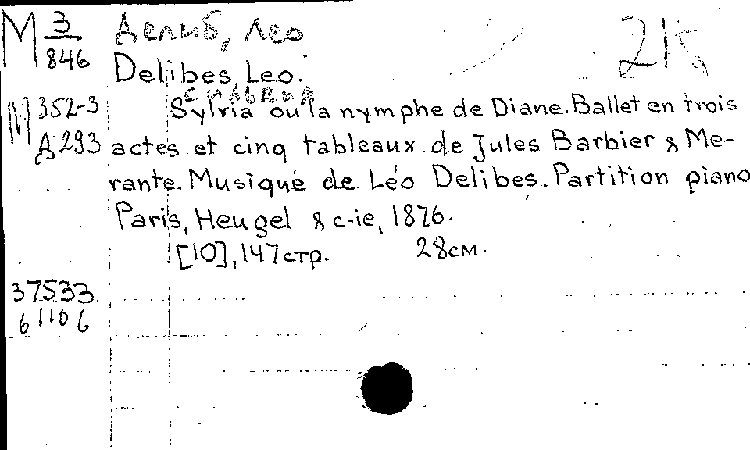 М 3/846 Делиб, Лео
Delibes Leo.
Сильвия
М 352-3 Sylvia ou la nymphe de Diane. Ballet en trois
Д 293 actes et cinq tableaux de Jules Barbier & Me-
rante. Musique de Léo Delibes. Partition piano
Paris, Heugel & c-ie, 1876.
[10], 147 стр. 28 см.
37533
61106